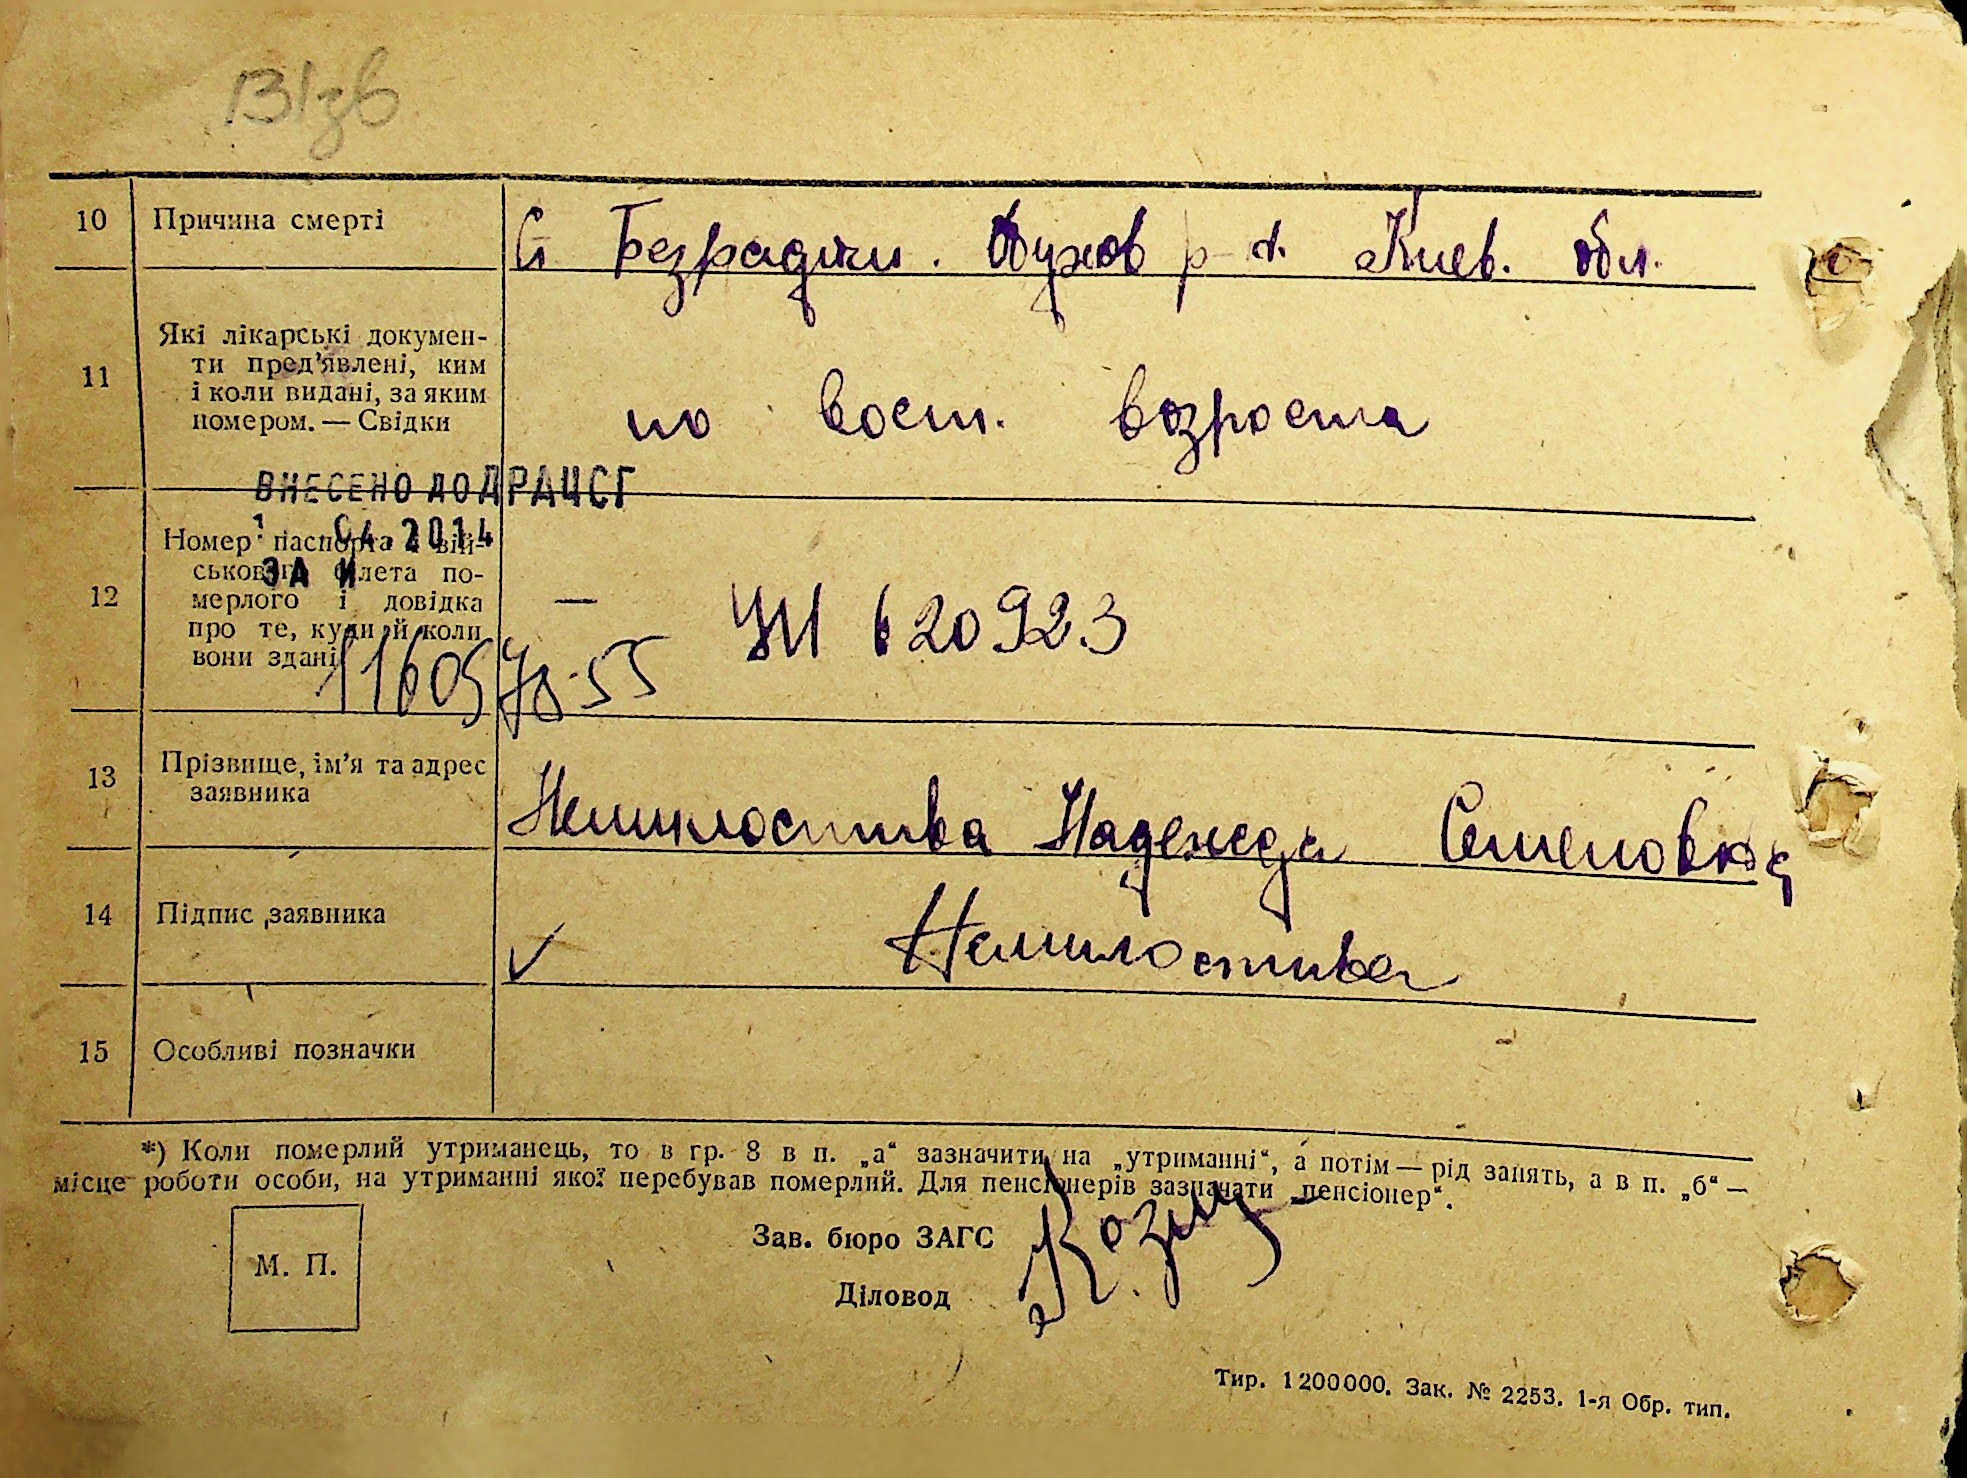 10 Причина смерті С Безрадичи. Обухов р-н. Киев. обл.
11 Які лікарські докумен-
ти пред'явлені, ким
і коли видані, за яким
номером. — Свідки
по вост. возроста
ВНЕСЕНО ДО ДРАЦСГ
04 2014
ЗА №
11605 55
12 Номер паспорта і вій-
ськового білета по-
мерлого і довідка
про те, куди й коли
вони здані
— 620923
13 Прізвище, ім'я та адрес
заявника
Немилостива Надежда Семеновна
14 Підпис заявника ✓ Немилостива
15 Особливі позначки
*) Коли померлий утриманець, то в гр. 8 в п. „а“ зазначити на „утриманні“, а потім — рід занять, а в п. „б“ —
місце роботи особи, на утриманні якої перебував померлий. Для пенсіонерів зазначати „пенсіонер“.
Зав. бюро ЗАГС
М. П.
Діловод
Тир. 1200000. Зак. № 2253. 1-я Обр. тип.